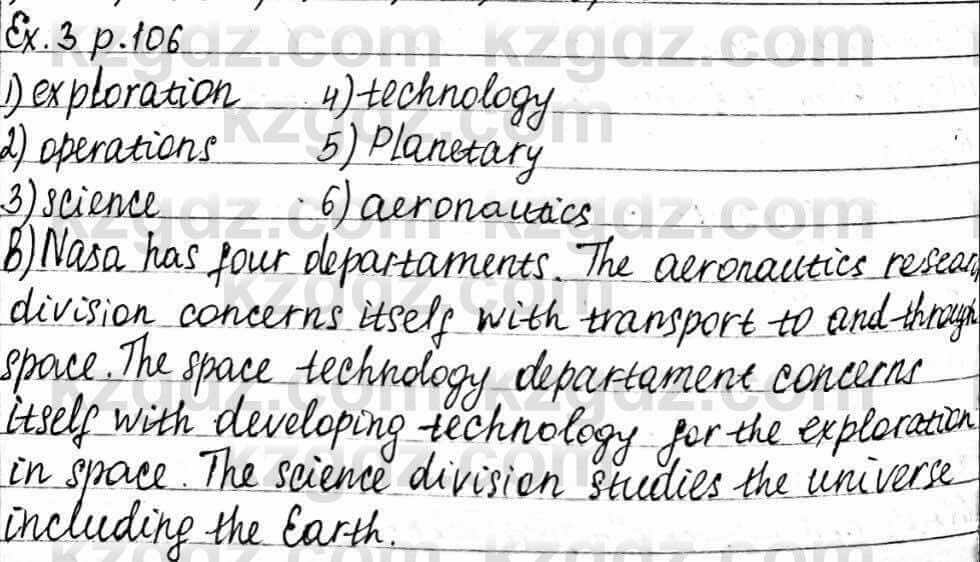 Ex. 3 p. 106
1) exploration 4) technology
2) operations 5) Planetary
3) science 6) aeronautics
B) Nasa has four departaments. The aeronautics reseac
division concerns itself with transport to and through
space. The space technology departament concerns
itself with developing technology for the exploration
in space. The science division studies the universe
including the Earth.
kzgdz.com